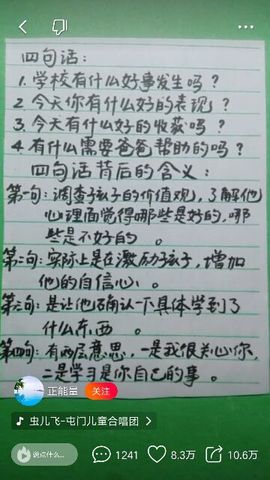 四句话：
1.学校有什么好事发生吗？
2.今天你有什么好的表现？
3.今天有什么好的收获吗？
4.有什么需要爸爸帮助的吗？
四句话背后的含义：
第一句：调查孩子的价值观，了解他
心理面觉得哪些是好的，哪
些是不好的。
第二句：实际上是在激励孩子，增加
他的自信心。
第三句：是让他确认一下具体学到了
什么东西。
第四句：有两层意思，一是我很关心你，
二是学习是你自己的事。
正能量 关注
虫儿飞-屯门儿童合唱团
说点什么... 1241 8.3万 10.6万